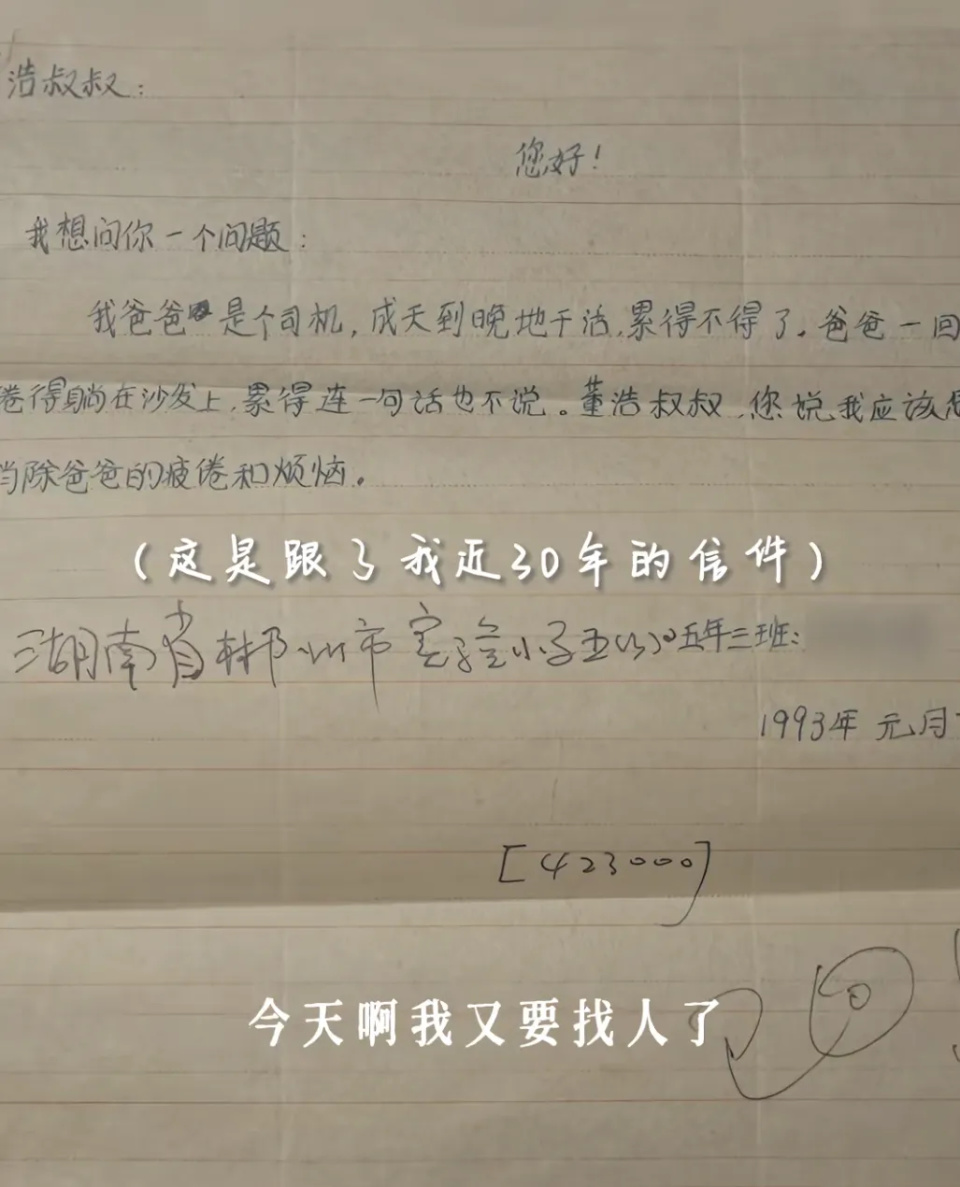 浩叔叔：
您好！
我想问你一个问题：
我爸爸是个司机，成天到晚地干活，累得不得了。爸爸一回
倦得躺在沙发上，累得连一句话也不说。董浩叔叔，您说我应该怎
消除爸爸的疲倦和烦恼。
（这是跟了我近30年的信件）
湖南省郴州市实验小学五(3)。五年三班：
1993年 元月
[423000]
今天啊我又要找人了